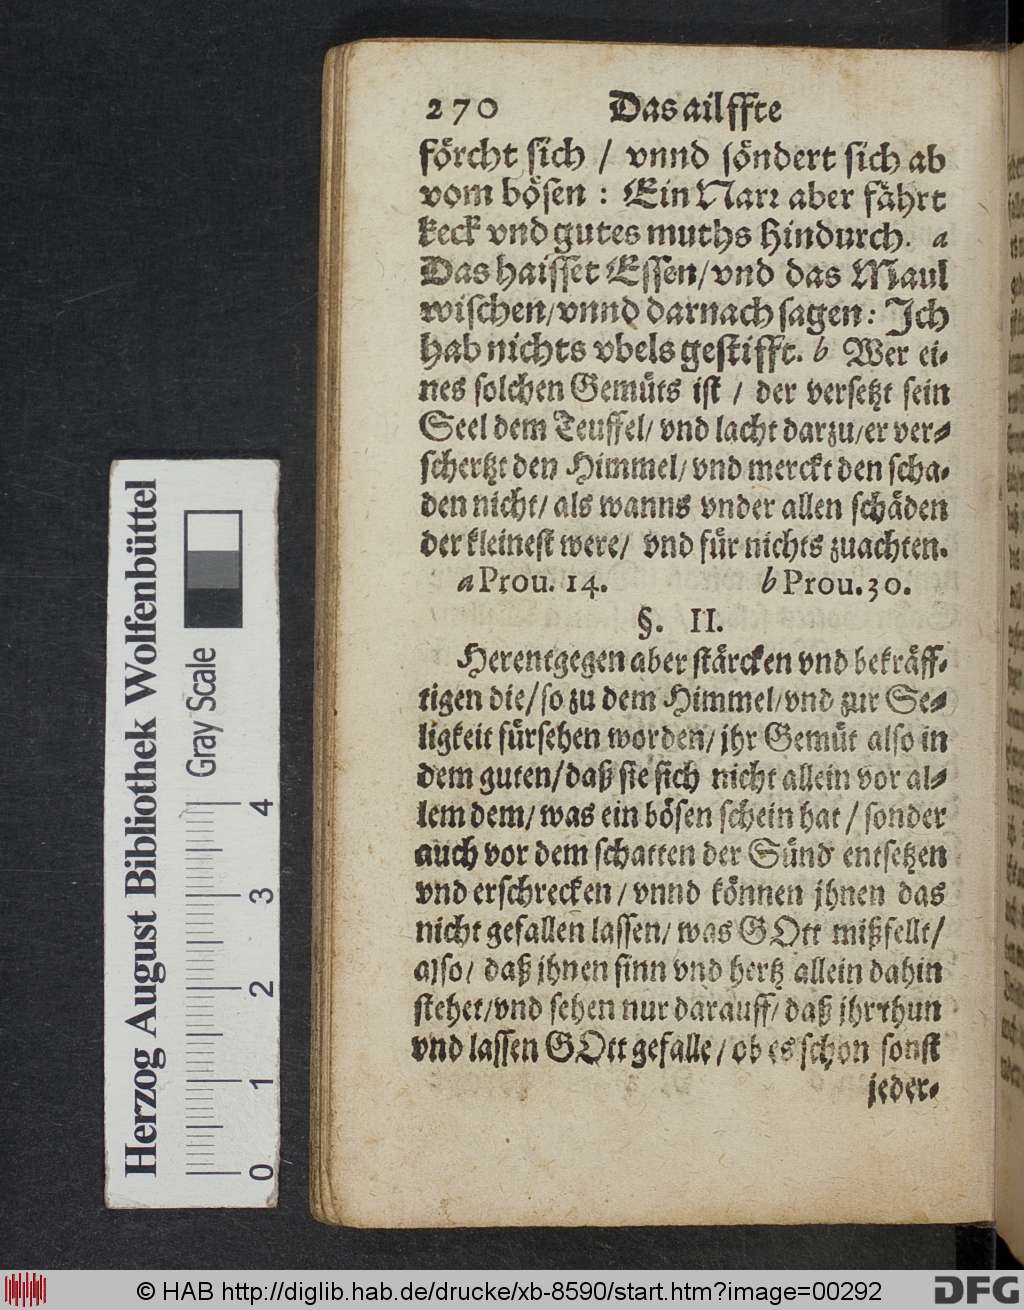 270 Das ailffte
förcht sich / vnnd söndert sich ab
vom bösen : Ein Narr aber fährt
keck vnd gutes muths hindurch. a
Das haisset Essen/vnd das Maul
wischen/vnnd darnach sagen: Jch
hab nichts vbels gestifft. b Wer ei-
nes solchen Gemüts ist / der versetzt sein
Seel dem Teuffel/ vnd lacht darzu/er ver-
schertzt den Himmel/ vnd merckt den scha-
den nicht/ als wanns vnder allen schäden
der kleinest were/ vnd für nichts zuachten.
a Prou. 14. b Prou. 30.
§. II.
Herentgegen aber stärcken vnd bekräff-
tigen die/so zu dem Himmel/vnd zur Se-
ligkeit fürsehen worden/ jhr Gemüt also in
dem guten/daß sie sich nicht allein vor al-
lem dem/ was ein bösen schein hat / sonder
auch vor dem schatten der Sünd entsetzen
vnd erschrecken / vnnd können jhnen das
nicht gefallen lassen/ was GOtt mißfellt/
also/ daß jhnen sinn vnd hertz allein dahin
stehet/vnd sehen nur darauff/ daß jhr thun
vnd lassen GOtt gefalle / ob es schon sonst
jeder-
Herzog August Bibliothek Wolfenbüttel
Gray Scale
0 1 2 3 4
© HAB http://diglib.hab.de/drucke/xb-8590/start.htm?image=00292
DFG